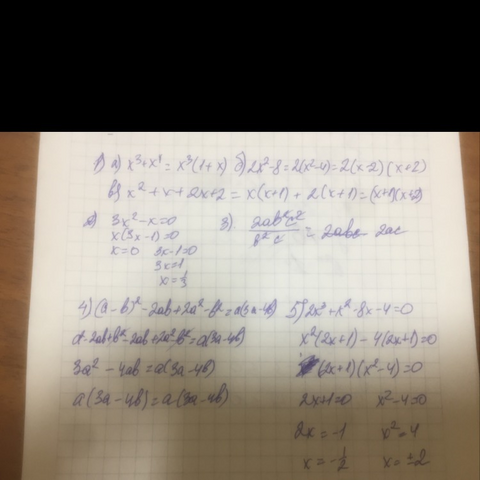 1) а) x³+x⁴ = x³(1+x) б) 2x²-8=2(x²-4)=2(x-2)(x+2)
в) x²+x+2x+2 = x(x+1)+2(x+1)=(x+1)(x+2)
2) 3x²-x=0
x(3x-1)=0
x=0 3x-1=0
3x=1
x=1/3
3) 2ab²c²/b²c = 2ac
4) (a-b)²-2ab+2a²-b²=a(3a-4b)
a²-2ab+b²-2ab+2a²-b²=a(3a-4b)
3a²-4ab=a(3a-4b)
a(3a-4b)=a(3a-4b)
5) 2x³+x²-8x-4=0
x²(2x+1)-4(2x+1)=0
(2x+1)(x²-4)=0
2x+1=0 x²-4=0
2x=-1 x²=4
x=-1/2 x=±2